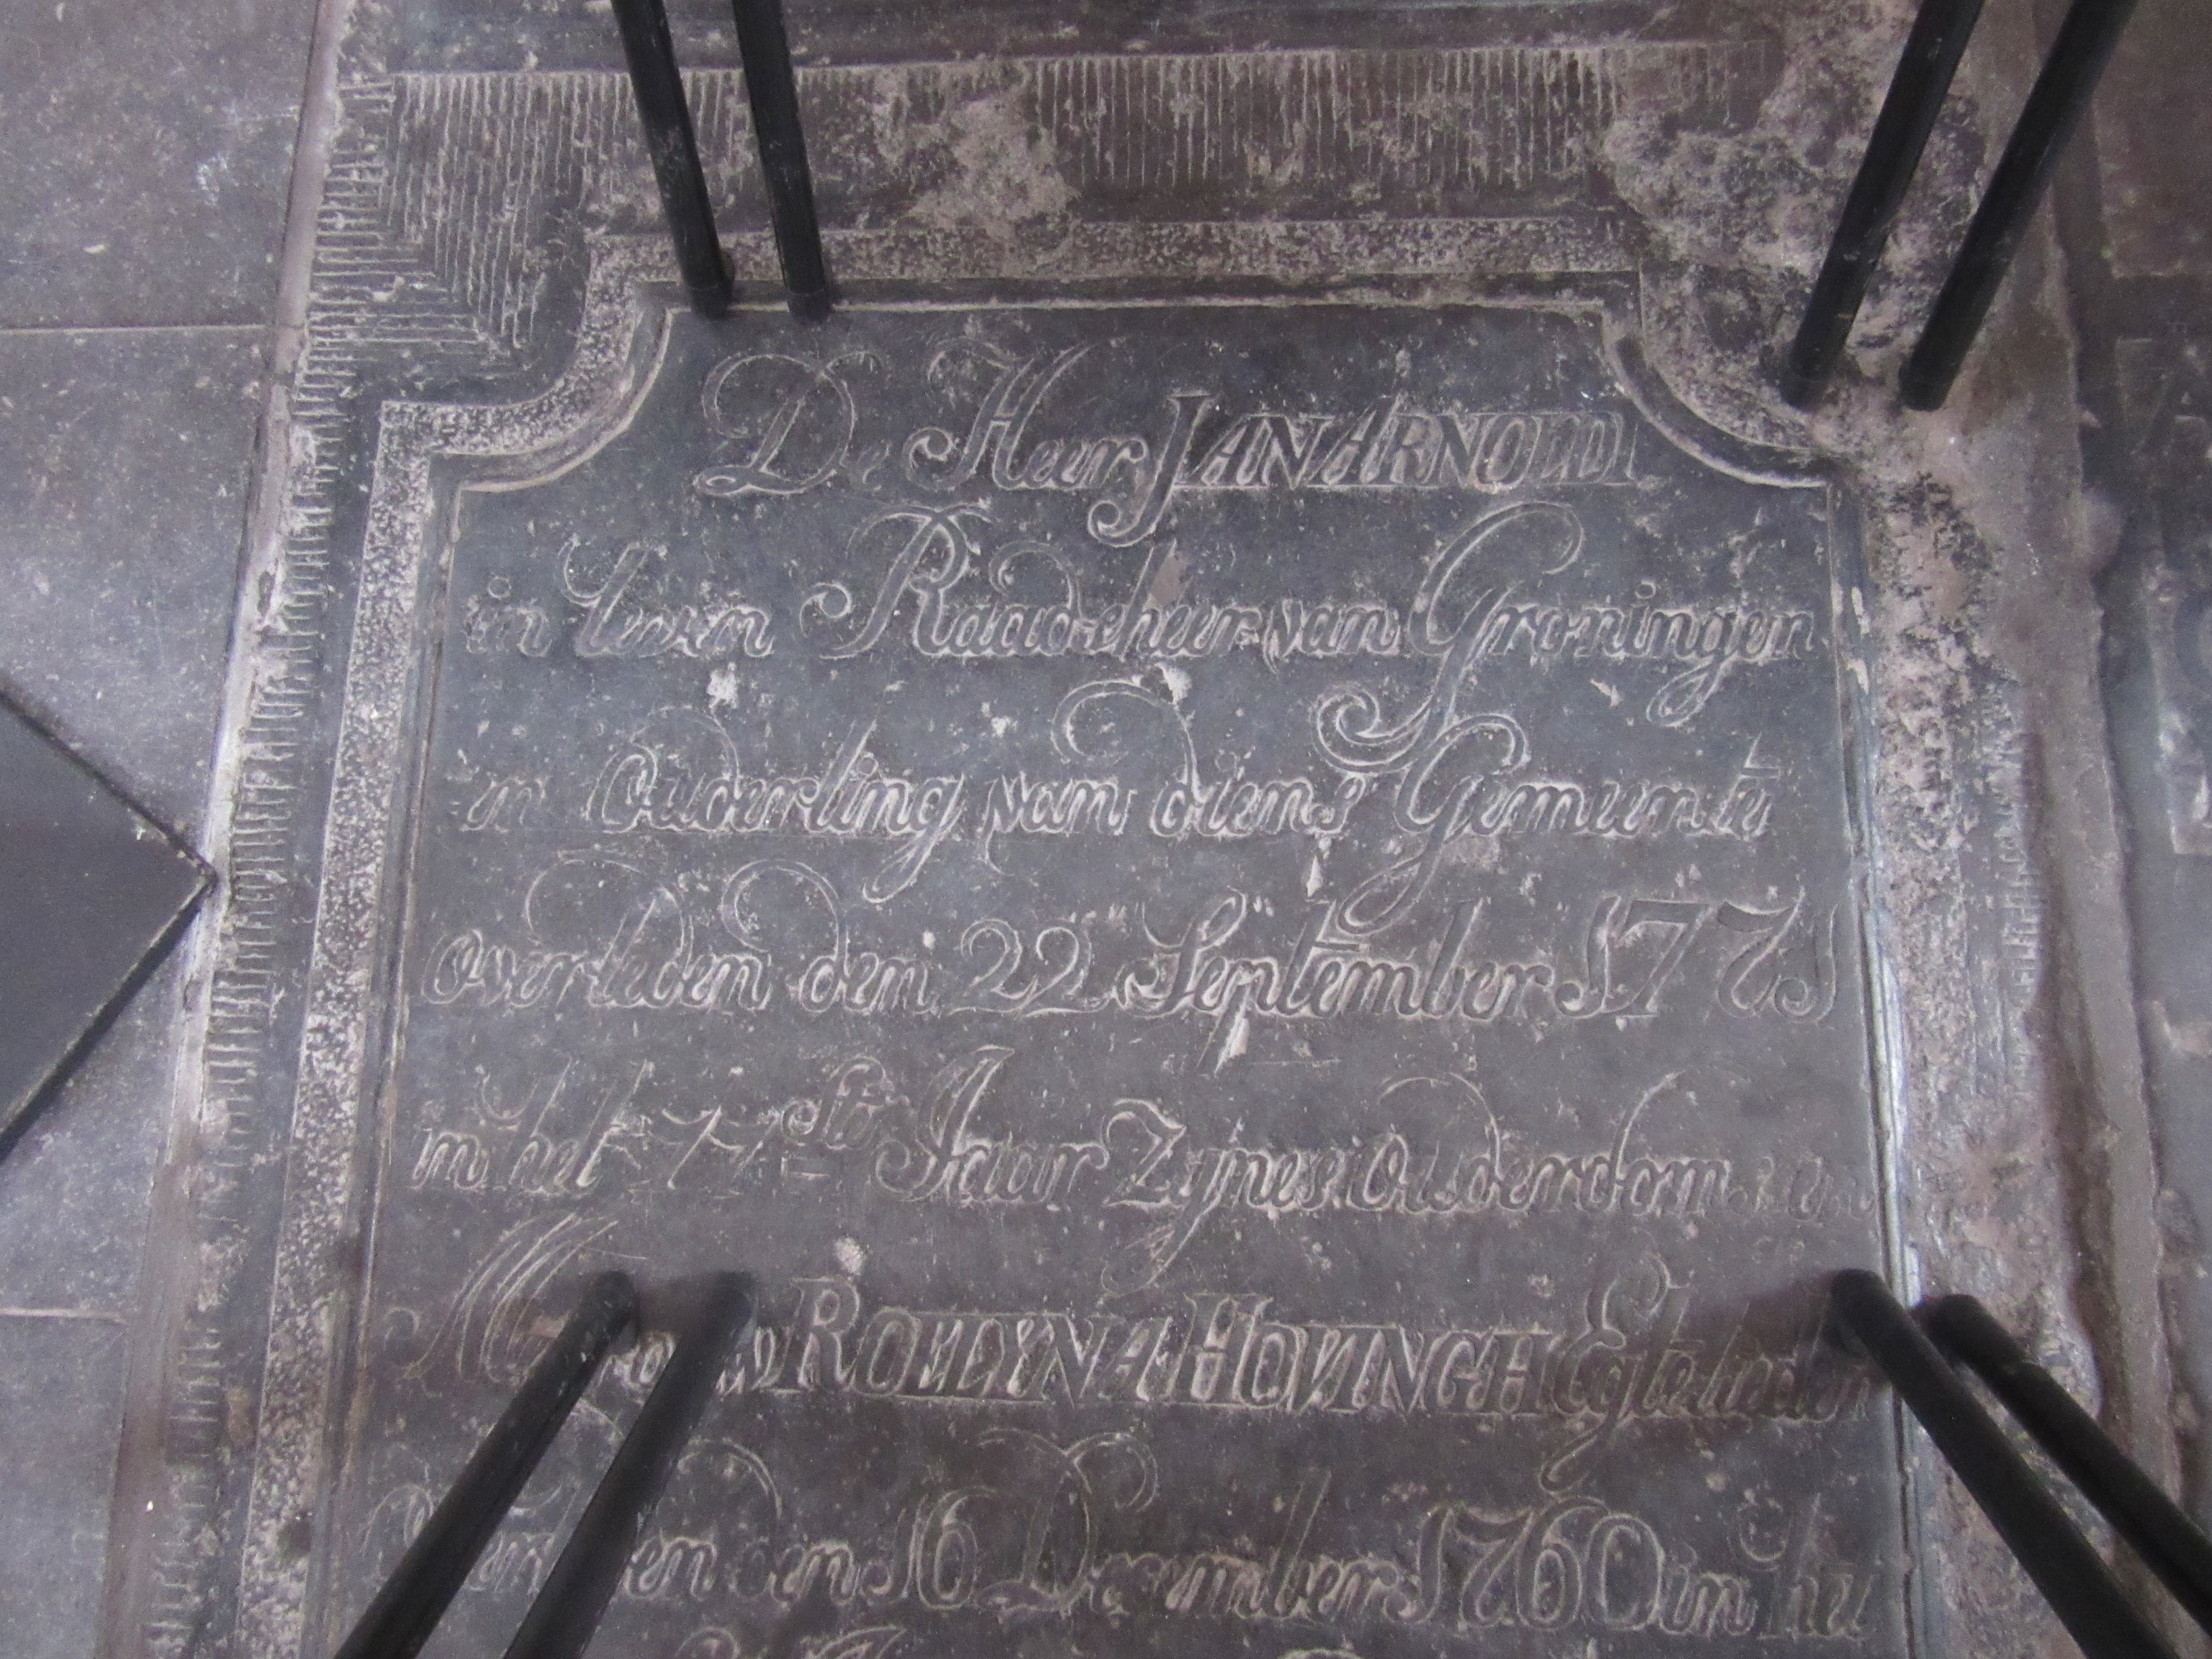 De Heer JAN ARNOLDI
in leven Raadsheer van Groningen
en Ouderling van diens Gemeente
overleden den 22 September 1771
in het 77ste Jaar Zijnes Ouderdoms en
Mevrouw ROELLYNA HOVINGH Egtelieden
overleden den 16 December 1760 in het